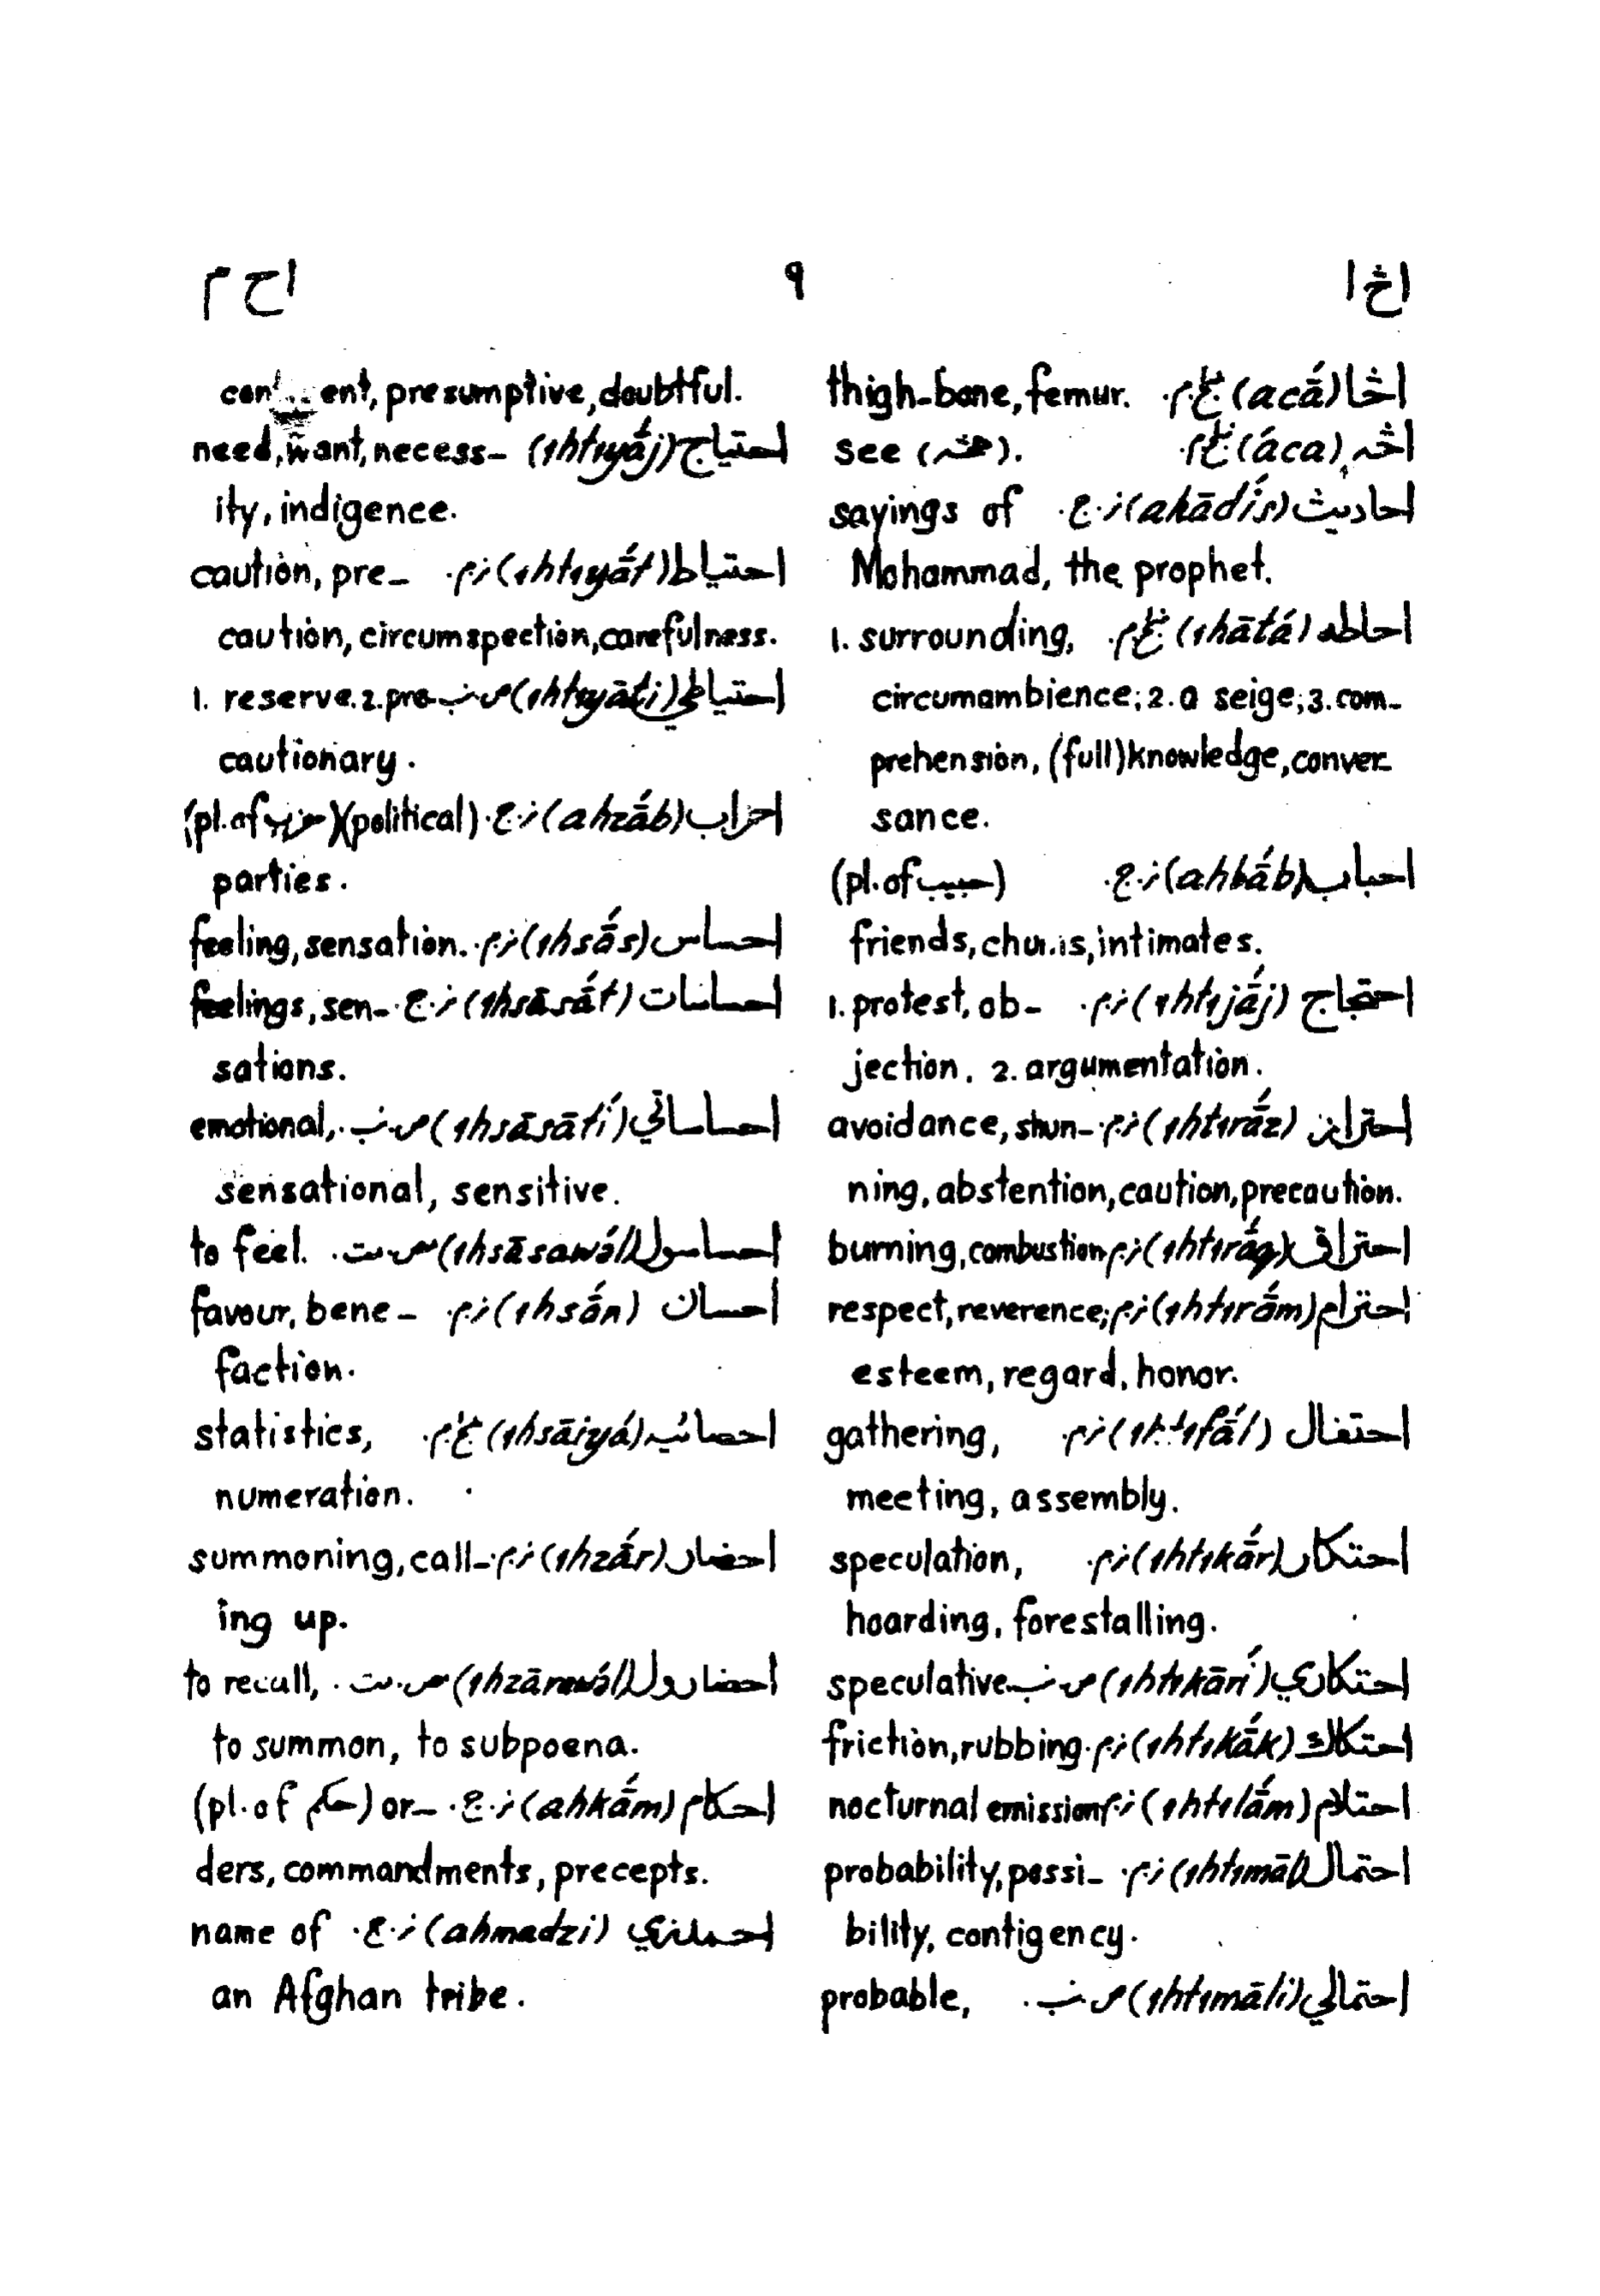 اڅ ا
۹
اح م
اڅا (acā́) ښځ.م. thigh-bone, femur.
اڅه (áca) ښځ.م. see (هڅه).
احادیث (ahādís) نر.ج. sayings of
Mohammad, the prophet.
احاطه (ıhātá) ښځ.م. 1. surrounding,
circumambience; 2. a seige; 3. com-
prehension, (full) knowledge, conver-
sance.
احباب (ahbā́b) نر.ج. (pl. of حبیب)
friends, intimates.
احتجاج (ıhtıjā́j) نر.م. 1. protest, ob-
jection. 2. argumentation.
احتراز (ıhtırā́z) نر.م. avoidance, shun-
ning, abstention, caution, precaution.
احتراق (ıhtırā́q) نر.م. burning, combustion
احترام (ıhtırā́m) نر.م. respect, reverence;
esteem, regard, honor.
احتفال نر.م. gathering,
meeting, assembly.
احتکار (ıhtıkā́r) نر.م. speculation,
hoarding, forestalling.
احتکاري (ıhtıkārí) ص.نب. speculative
احتکاک (ıhtıkā́k) نر.م. friction, rubbing.
احتلام (ıhtılā́m) نر.م. nocturnal emission
احتمال (ıhtımāl) نر.م. probability, possi-
bility, contigency.
احتمالي (ıhtımāli) ص.نب. probable,
presumptive, doubtful.
احتیاج (ıhtıyā́j) need, want, necess-
ity, indigence.
احتیاط (ıhtıyā́t) نر.م. caution, pre-
caution, circumspection, carefulness.
احتیاطي (ıhtıyāti) ص.نب. 1. reserve. 2. pre
cautionary.
احزاب (ahzā́b) نر.ج. (pl. of حزب) (political)
parties.
احساس (ıhsā́s) نر.م. feeling, sensation.
احساسات (ıhsāsā́t) نر.ج. feelings, sen-
sations.
احساساتي (ıhsāsātí) ص.نب. emotional,
sensational, sensitive.
احساسول (ıhsāsawə́l) مص.مت. to feel.
احسان (ıhsā́n) نر.م. favour, bene-
faction.
احصائیه (ıhsāiyá) ښځ.م. statistics,
numeration.
احضار (ıhzā́r) نر.م. summoning, call-
ing up.
احضارول (ıhzārawə́l) مص.مت. to recall,
to summon, to subpoena.
احکام (ahkā́m) نر.ج. (pl. of حکم) or-
ders, commandments, precepts.
احمدزي (ahmadzi) نر.ج. name of
an Afghan tribe.